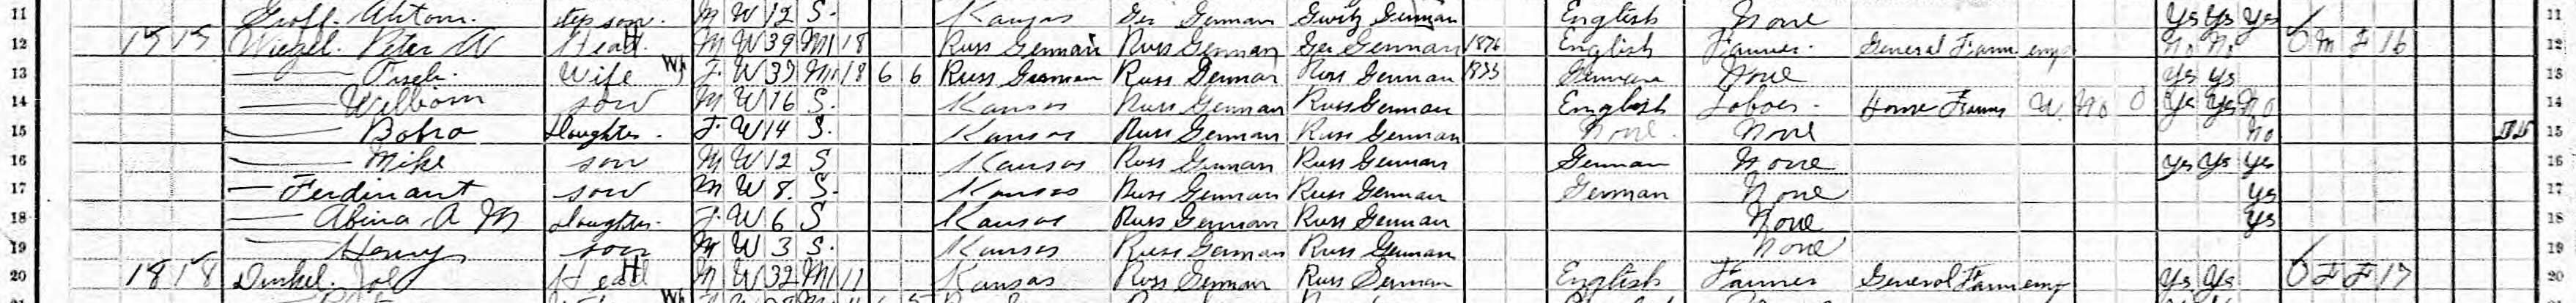 11 Groff. Antom. step son. M W 12 S. Kansas Ger German Switz German English None Yes Yes Yes 11
12 15 15 Wiegel. Peter W Head. M W 39 M1 18 Russ German Russ German Ger German 1876 English Farmer. General Farm emp No No O M F 16 12
13 — Wife W F. W 39 M1 18 6 6 Russ German Russ German Russ German German None Yes Yes 13
14 — William son M W 16 S. Kansas Russ German Russ German English Labor. Home Farm W. No 0 Yes Yes No 14
15 — Daughter. F. W 14 S. Kansas Russ German Russ German None. None No 15
16 — Mike son M W 12 S Kansas Russ German Russ German German None Yes Yes Yes 16
17 — Ferdinant son M W 8. S. Kansas Russ German Russ German German None Yes 17
18 — Abina A M Daughter. F. W 6 S Kansas Russ German Russ German None Yes 18
19 — Henry son M W 3 S. Kansas Russ German Russ German None 19
20 18 18 Dinkel. Head M W 32 M1 11 Kansas Russ German Russ German English Farmer General Farm emp Yes Yes O F F 17 20